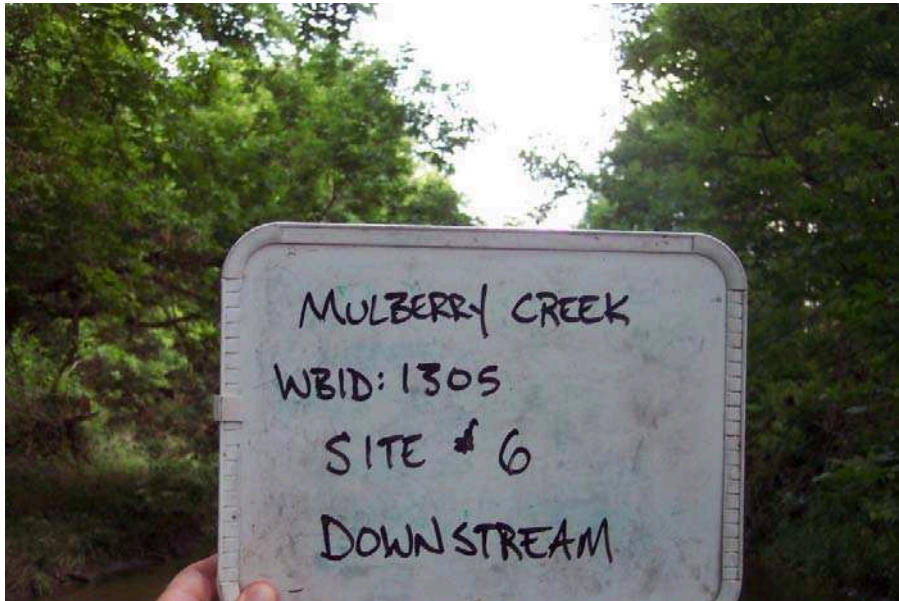 MULBERRY CREEK
WBID: 1305
SITE # 6
DOWNSTREAM